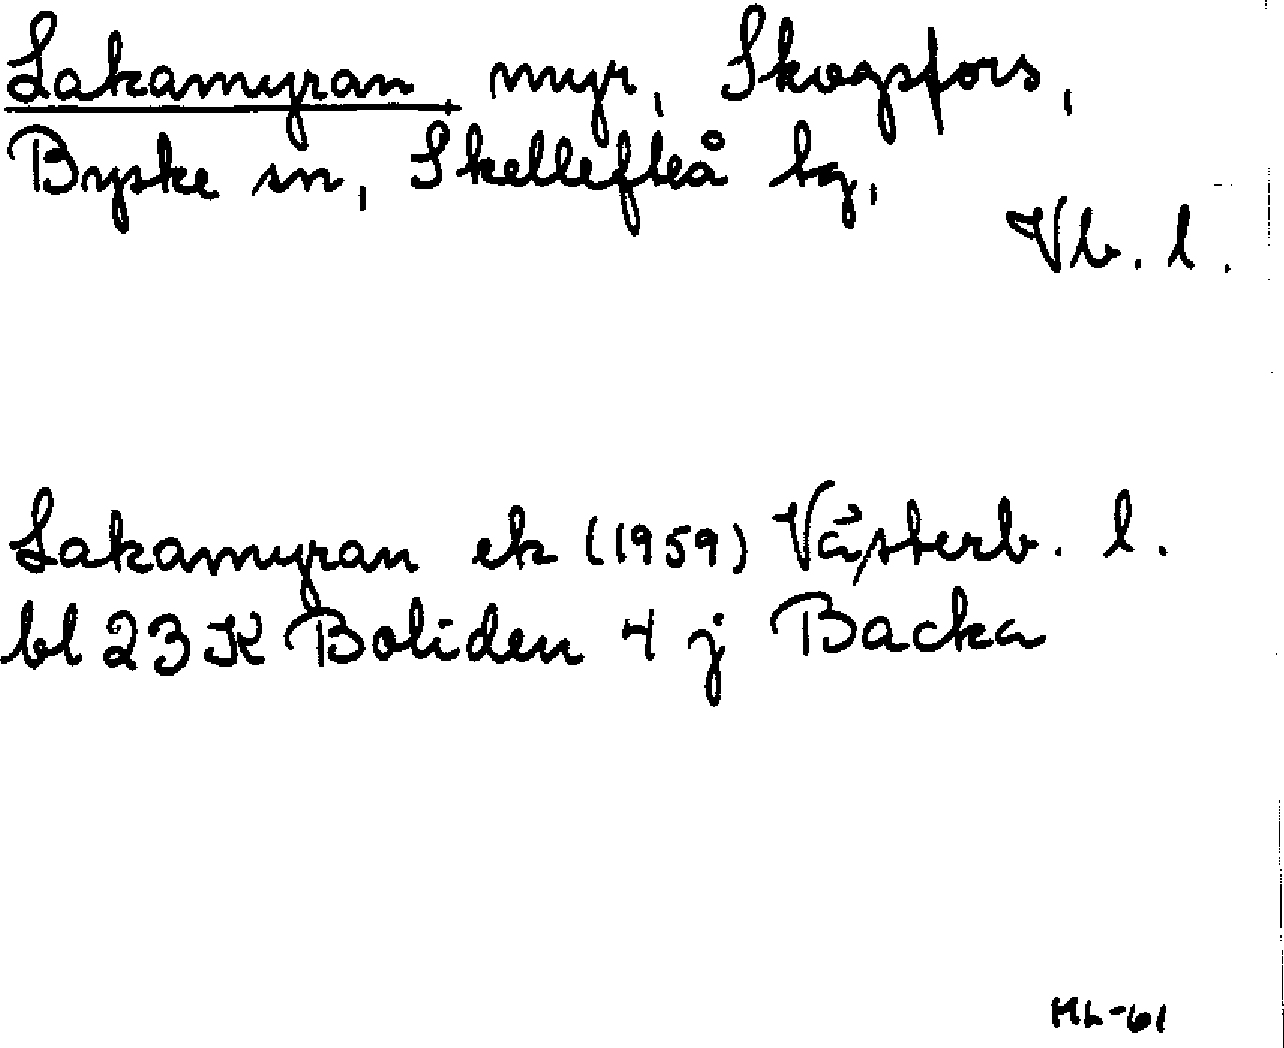 Lakamyran myr, Skogsfors,
Byske sn, Skellefteå tg,
Vb. l.
Lakamyran ek (1959) Västerb. l.
bl 23 K Boliden 4 j Backa
HL-61